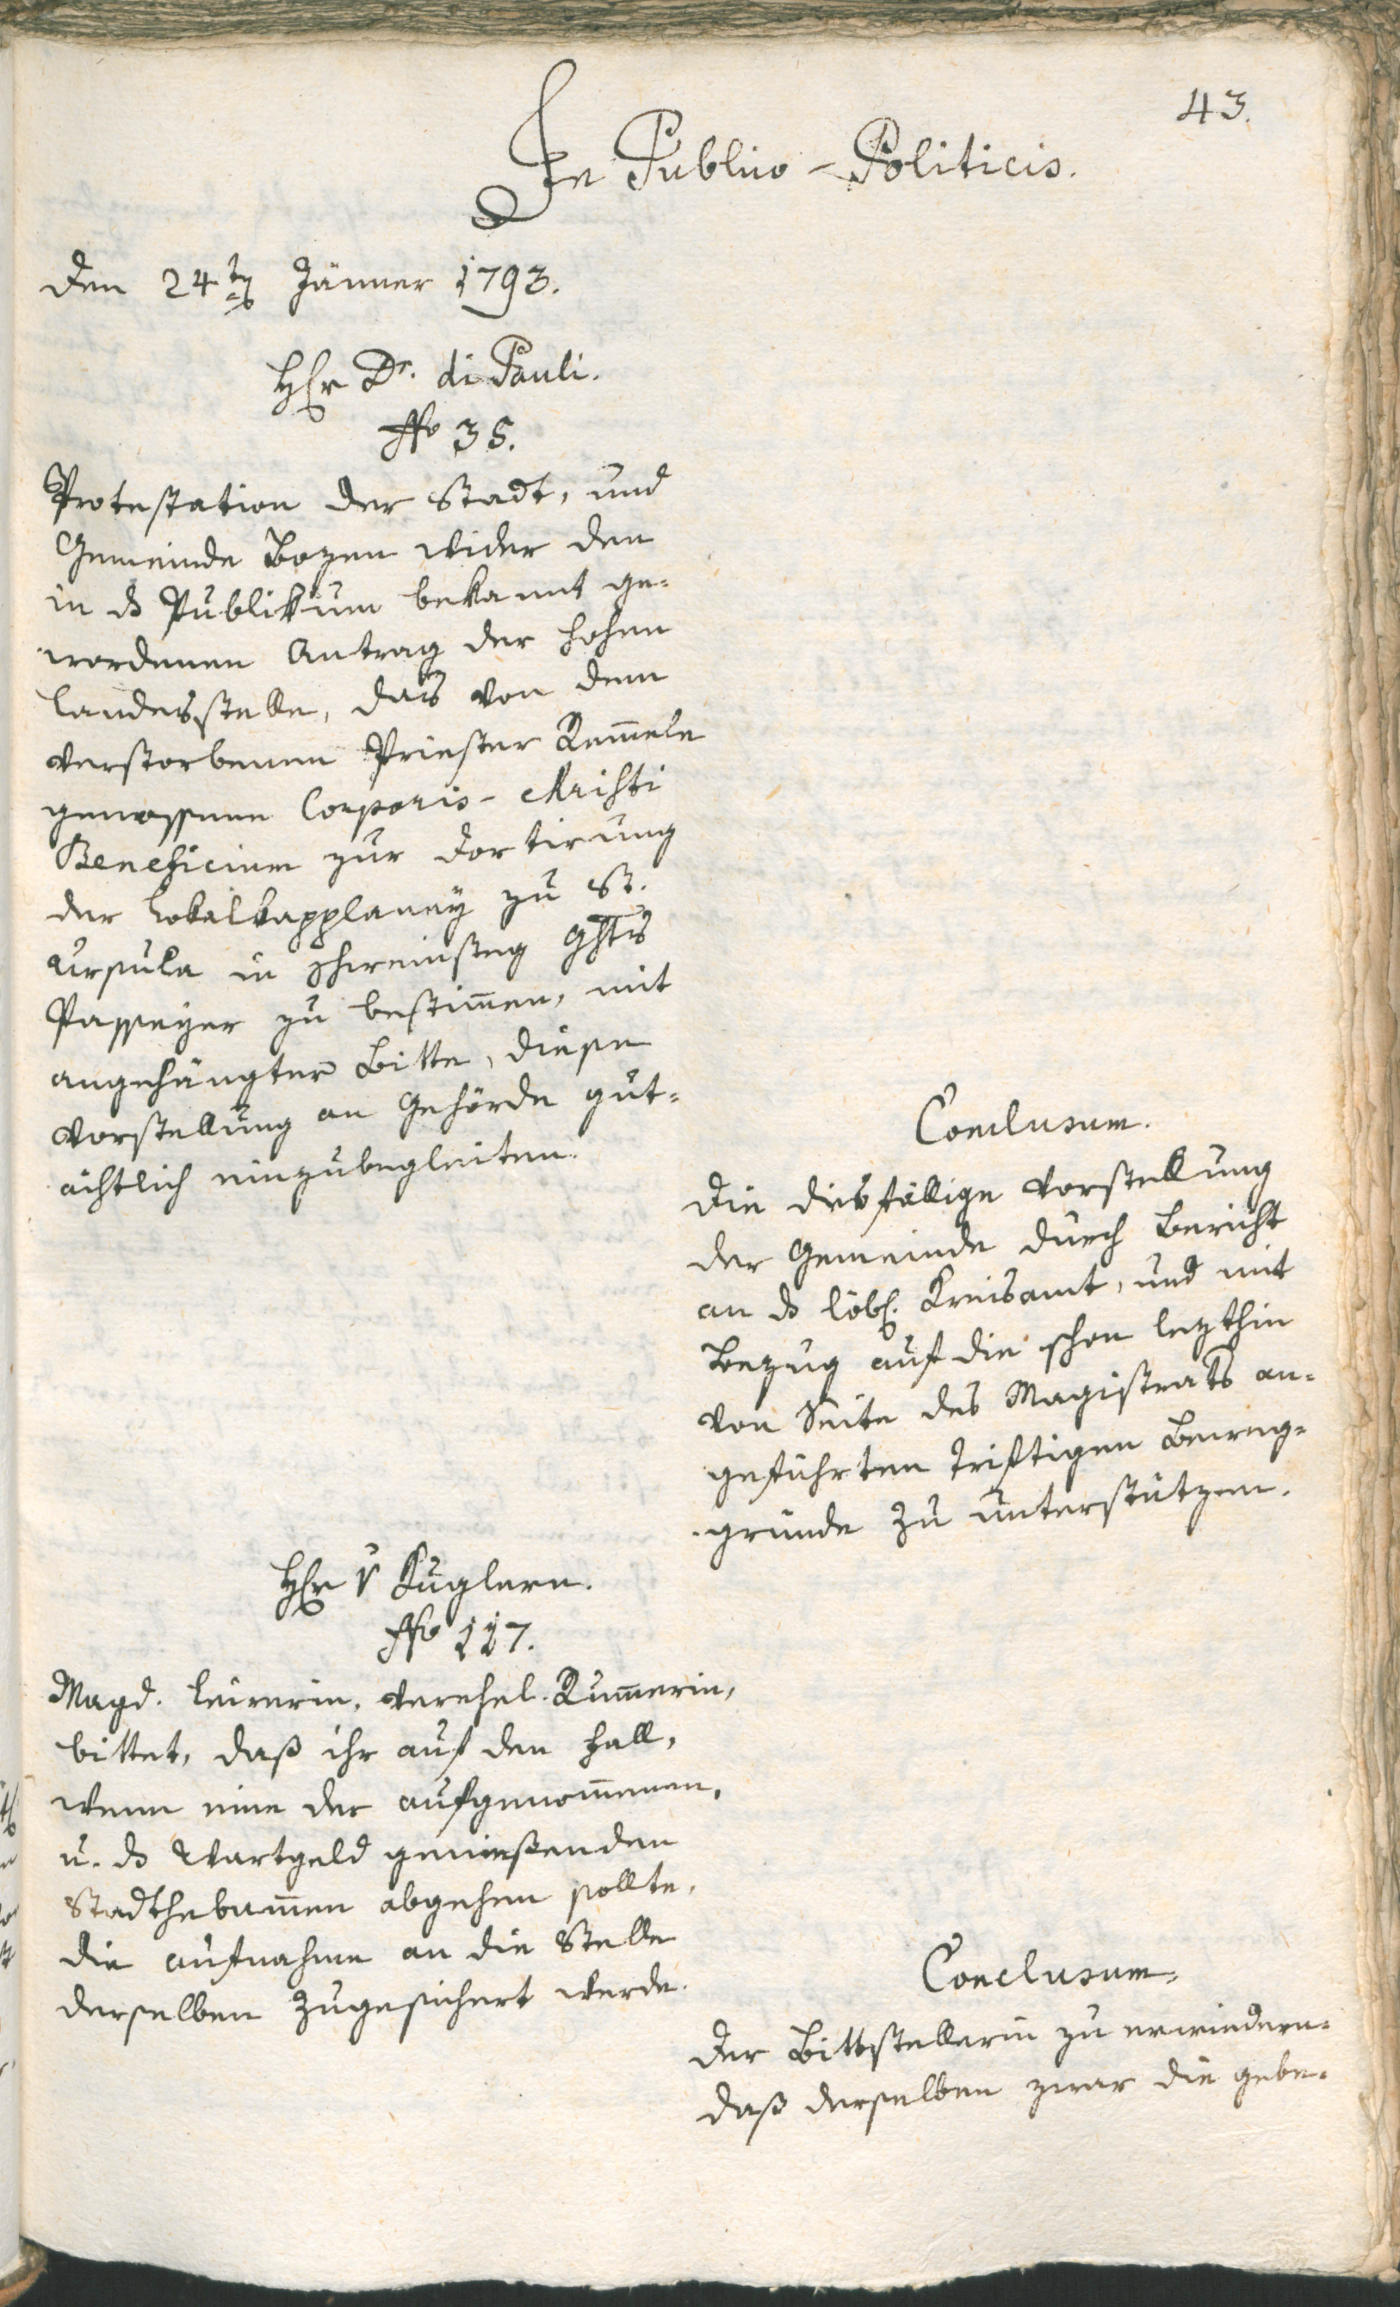 43.
In Publico-Politicis.
den 24ten Jänner 1793.
Herr Dr. di Pauli.
No 35.
Protestation der Stadt, und
Gemeinde Bozen wider den
in ds Publikum bekannt ge-
wordenen Antrag der hohen
Landesstelle, das von dem
verstorbenen Priester Remele
genossene Corporis-Christi
Beneficium zur Dortirung
der Lokalkapplaney zu St.
Ursula in Ghts
Passeyer zu bestimen, mit
angehängter Bitte, diese
Vorstellung an Gehörde gut-
ächtlich einzubegleiten.
Conclusum.
Die diesfällige Vorstellung
der Gemeinde durch Bericht
an ds löbl. Kreisamt, und mit
Bezug auf die schon lezthin
von Seite des Magistrats an-
geführten triftigen Beweg-
gründe zu unterstützen.
Herr v Kuglern.
No 117.
Magd. Leirerin, verehel. Rumerin,
bittet, daß ihr auf den Fall,
wenn eine der aufgenomenen,
u. ds Wartgeld genießenden
Stadthebamen abgehen sollte,
die Aufnahme an die Stelle
derselben zugesichert werde.
Conclusum.
Der Bittstellerin zu erwiedern-
daß derselben zwar die gebe-